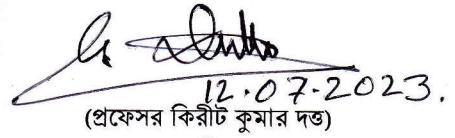 12.07.2023.
(প্রফেসর কিরীট কুমার দত্ত)